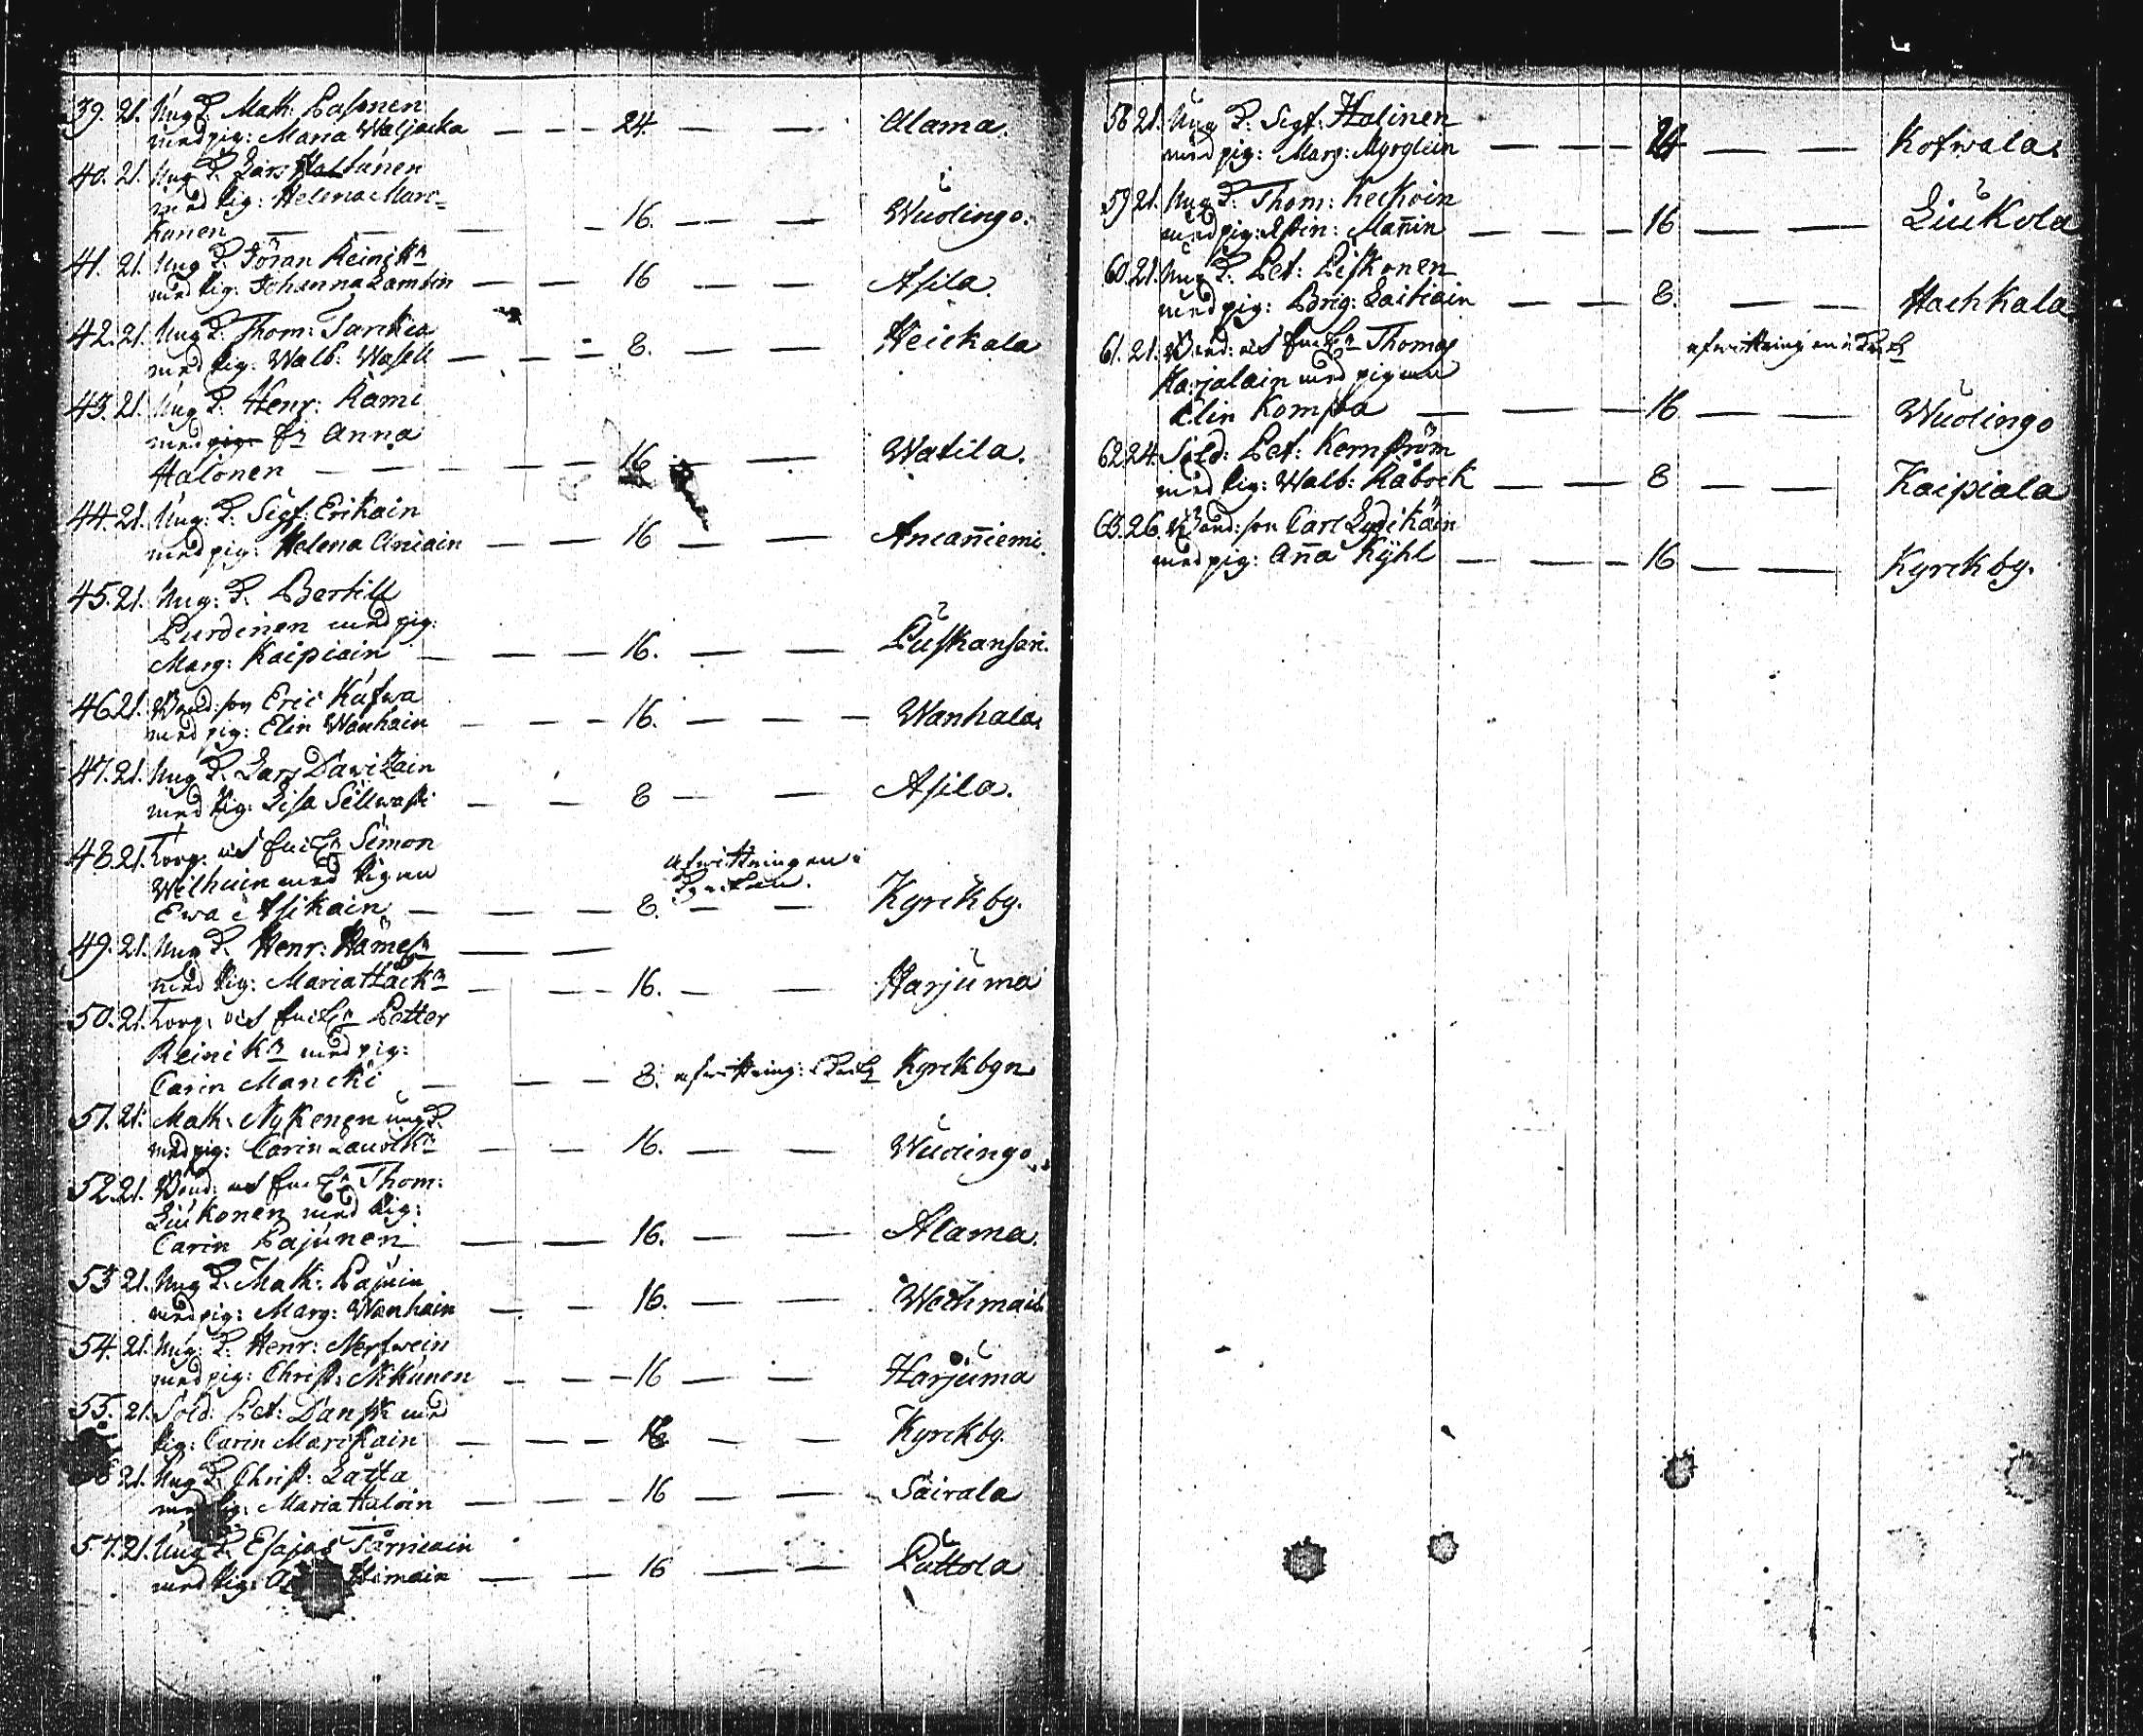 39. 21. Ung D. Math: Pasonen
med pig: Maria Waljacka — — 24. — — Alama.
40. 21. Ung D. Lars Haltunen
med pig: Helena Marc=
kanen — — 16. — — Wuolingo.
41. 21. Ung D. Jöran Reinikn
med pig: Johanna Lambin — — 16 — — Asila.
42. 21. Ung D. Thom: Tarkia
med pig: Walb: Wasell — — 8. — — Heickala
43. 21. Ung D. Henr: Rämi
med fr Anna
Halonen — — 16 — — Watila.
44. 21. Ung: D. Sigf: Erikain
med pig: Helena Ciniain — — 16 — — Ancañiemi.
45. 21. Ung: D. Bertill
Purdinen med pig:
Marg: Kaipiain — — 16. — — Puskansari.
46 21. Bond: son Eric Käfwa
med pig: Elin Wanhain — — 16. — — Wanhala
47. 21. Ung D. Lars Dawikain
med pig: Lisa Sellwast — — 8 — — Asila.
48. 21. Torp: Simon
Wilhuin med pigan
Ewa Asikain — — 8. afwittringen i
— — Kyrckby.
49. 21. Ung D. Henr: Hämeln — —
med pig: Maria Häckn — — 16. — — Harjuma
50. 21. Torp: Petter
Reinikn med pig:
Carin Mancki — — 8. afwittring: Kyrckbyn
51. 21. Math: Nykenen ung D.
med pig: Carin Laudikn — — 16. — — Wuolingo
52. 21. Bond: Thom:
Liukonen med pig:
Carin Pajunen — — 16. — — Alama.
53 21. Ung D. Math: Pajuin
med pig: Marg: Wanhain — — 16. — — Wechmais
54. 21. Ung: D. Henr: Merfwein
med pig: Christ: Nikunen — — 16 — — Harjuma
55. 21. Sold: Pet: Dansk med
pig: Carin Marikain — — 16 — — Kyrckby.
21. Ung D. Christ: Lätta
med pig: Maria Haloin — — 16 — — Sairala
57. 21. Ung D. Esajas Tarniain
med pig: — — 16 — — Puttola
58 21. Ung D. Sigf: Halinen
med pig: Marg: Myrglein — — 24 — — Kofwala.
59 21. Ung D. Thom: Keckoin
med pig: Stin: Mañin — — 16 — — Liukola
60. 21. Ung D. Pet: Piskonen
med pig: Brig: Laitiain — — 8. — — Hachkala
61. 21. Bond: Thomas
Karjalain med pigan afwittringen i
Elin Kompba — — 16 — — Wuolingo
62 24. Sold: Pet: Kernström
med pig: Walb: Raboek — — 8 — — Kaipiala
63. 26. Bond: son Carl Lydikäin
med pig: Aña Kyhl — — 16 — — Kyrckby.